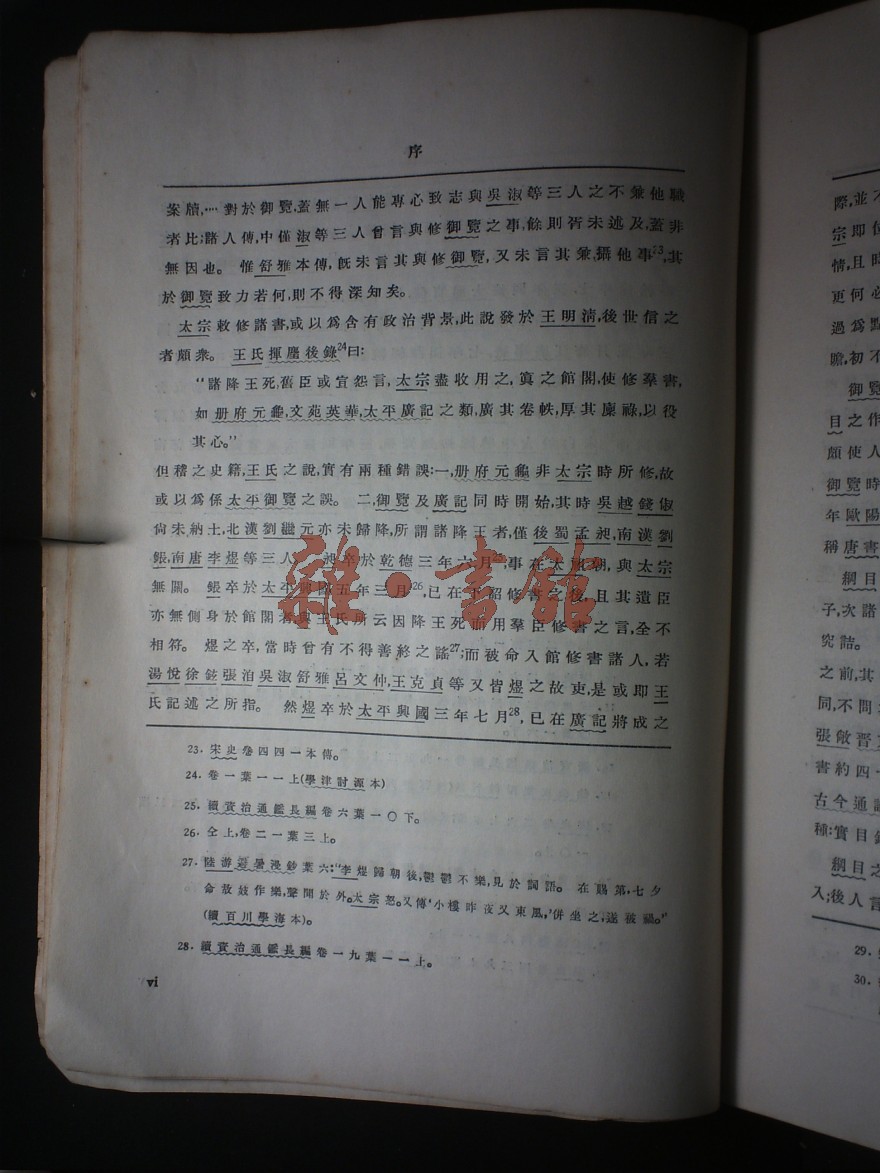 序
案牘,…對於御覽,蓋無一人能專心致志與吳淑等三人之不兼他職
者比;諸人傳,中僅淑等三人曾言與修御覽之事,餘則胥未述及,蓋非
無因也。 惟舒雅本傳,旣未言其與修御覽,又未言其兼攝他事23,其
於御覽致力若何,則不得深知矣。
太宗敕修諸書,或以爲含有政治背景,此說發於王明清,後世信之
者頗衆。 王氏揮麈後錄24曰:
“諸降王死,舊臣或宣怨言,太宗盡收用之,寘之館閣,使修羣書,
如册府元龜,文苑英華,太平廣記之類,廣其卷帙,厚其廩祿,以役
其心。”
但稽之史籍,王氏之說,實有兩種錯誤:一,册府元龜非太宗時所修,故
或以爲係太平御覽之誤。 二,御覽及廣記同時開始,其時吳越錢俶
尙未納土,北漢劉繼元亦未歸降,所謂諸降王者,僅後蜀孟昶,南漢劉
鋹,南唐李煜等三人 昶卒於乾德三年六月 事在太祖朝,與太宗
無關。 鋹卒於太平興國五年三月26,已在下詔修書之後,且其遺臣
亦無側身於館閣者與王氏所云因降王死而用羣臣修書之言,全不
相符。 煜之卒,當時曾有不得善終之謠27;而被命入館修書諸人,若
湯悅徐鉉張洎吳淑舒雅呂文仲,王克貞等又皆煜之故吏,是或即王
氏記述之所指。 然煜卒於太平興國三年七月28,已在廣記將成之
23. 宋史卷四四一本傳。
24. 卷一葉一一上(學津討源本)
25. 續資治通鑑長編卷六葉一〇下。
26. 仝上,卷二一葉三上。
27. 陸游避暑漫鈔葉六:“李煜歸朝後,鬱鬱不樂,見於詞語。 在賜第,七夕
命故妓作樂,聲聞於外。太宗怒。又傳‘小樓昨夜又東風,’併坐之,遂被禍。”
(續百川學海本)。
28. 續資治通鑑長編卷一九葉一一上。
vi
雜·書館
際,並不
宗即位
情,且時
更何必
過爲點
瞻,初不
御覽
目之作
頗使人
御覽時
年歐陽
稱唐書
綱目
子,次諸
究詰。
之前,其
同,不問
張敞晉
書約四
古今通
種:實目
綱目之
入;後人言
29.
30.